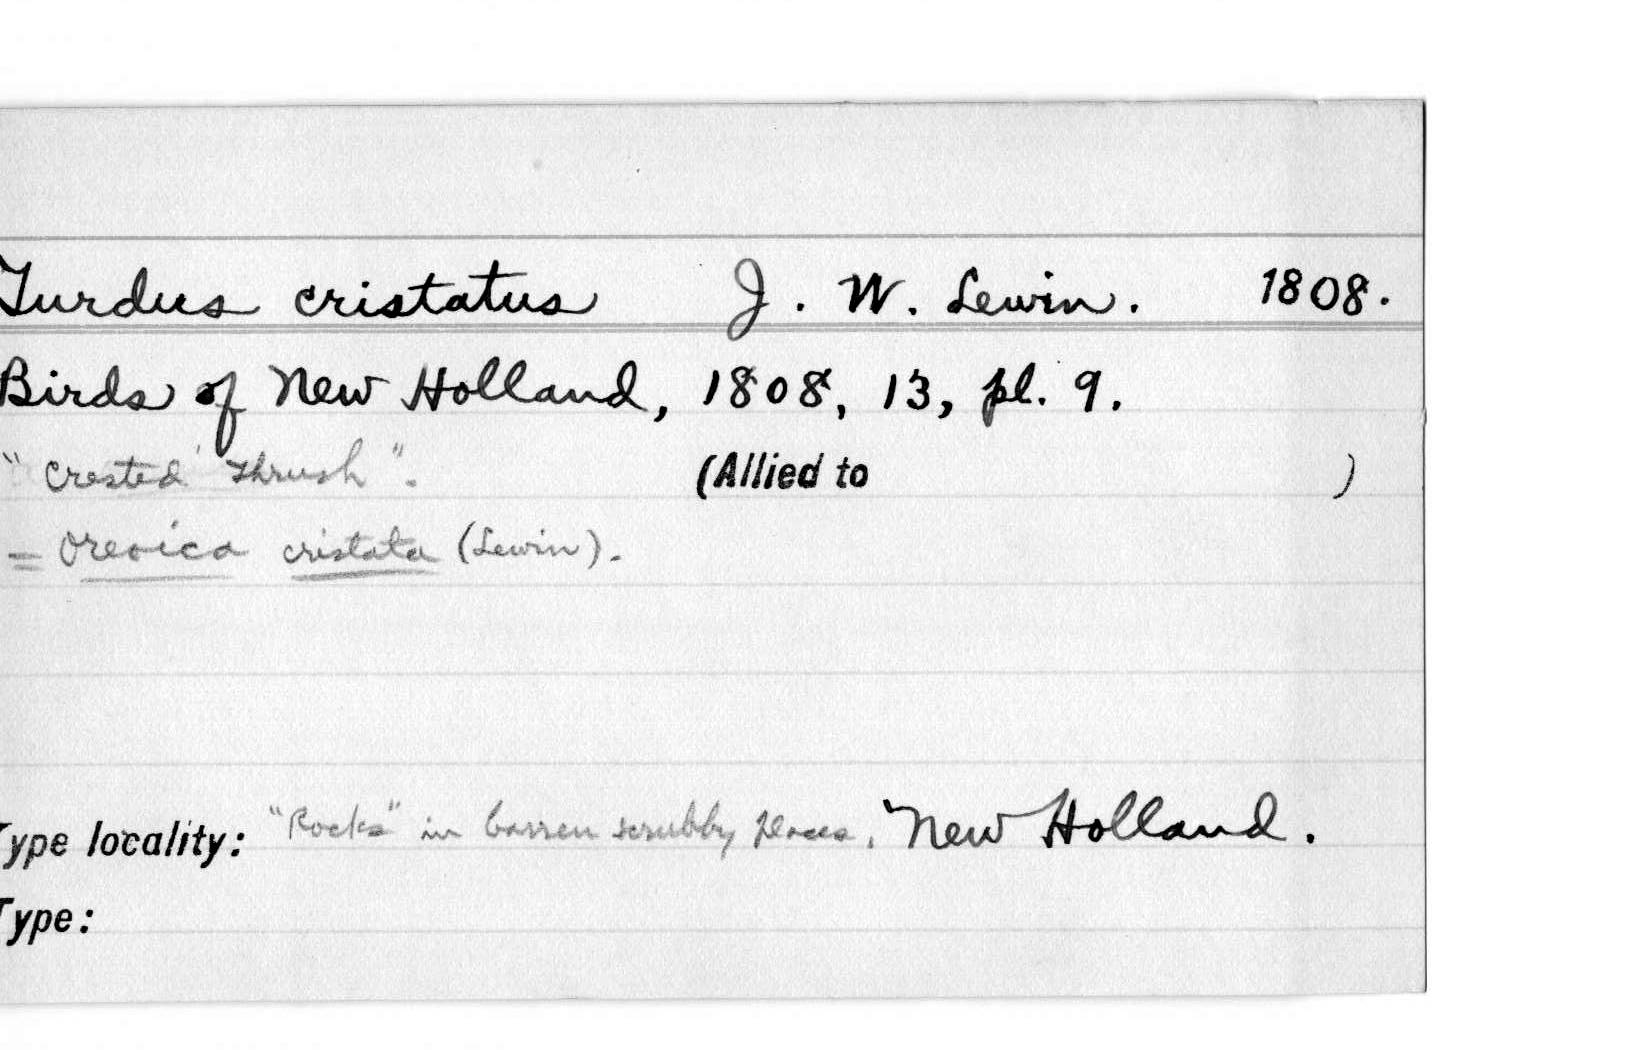 Turdus cristatus J. W. Lewin. 1808.
Birds of New Holland, 1808, 13, pl. 9.
"Crested Thrush". (Allied to )
= Oreoica cristata (Lewin).
Type locality: "Rocks" in barren scrubby places, New Holland.
Type: